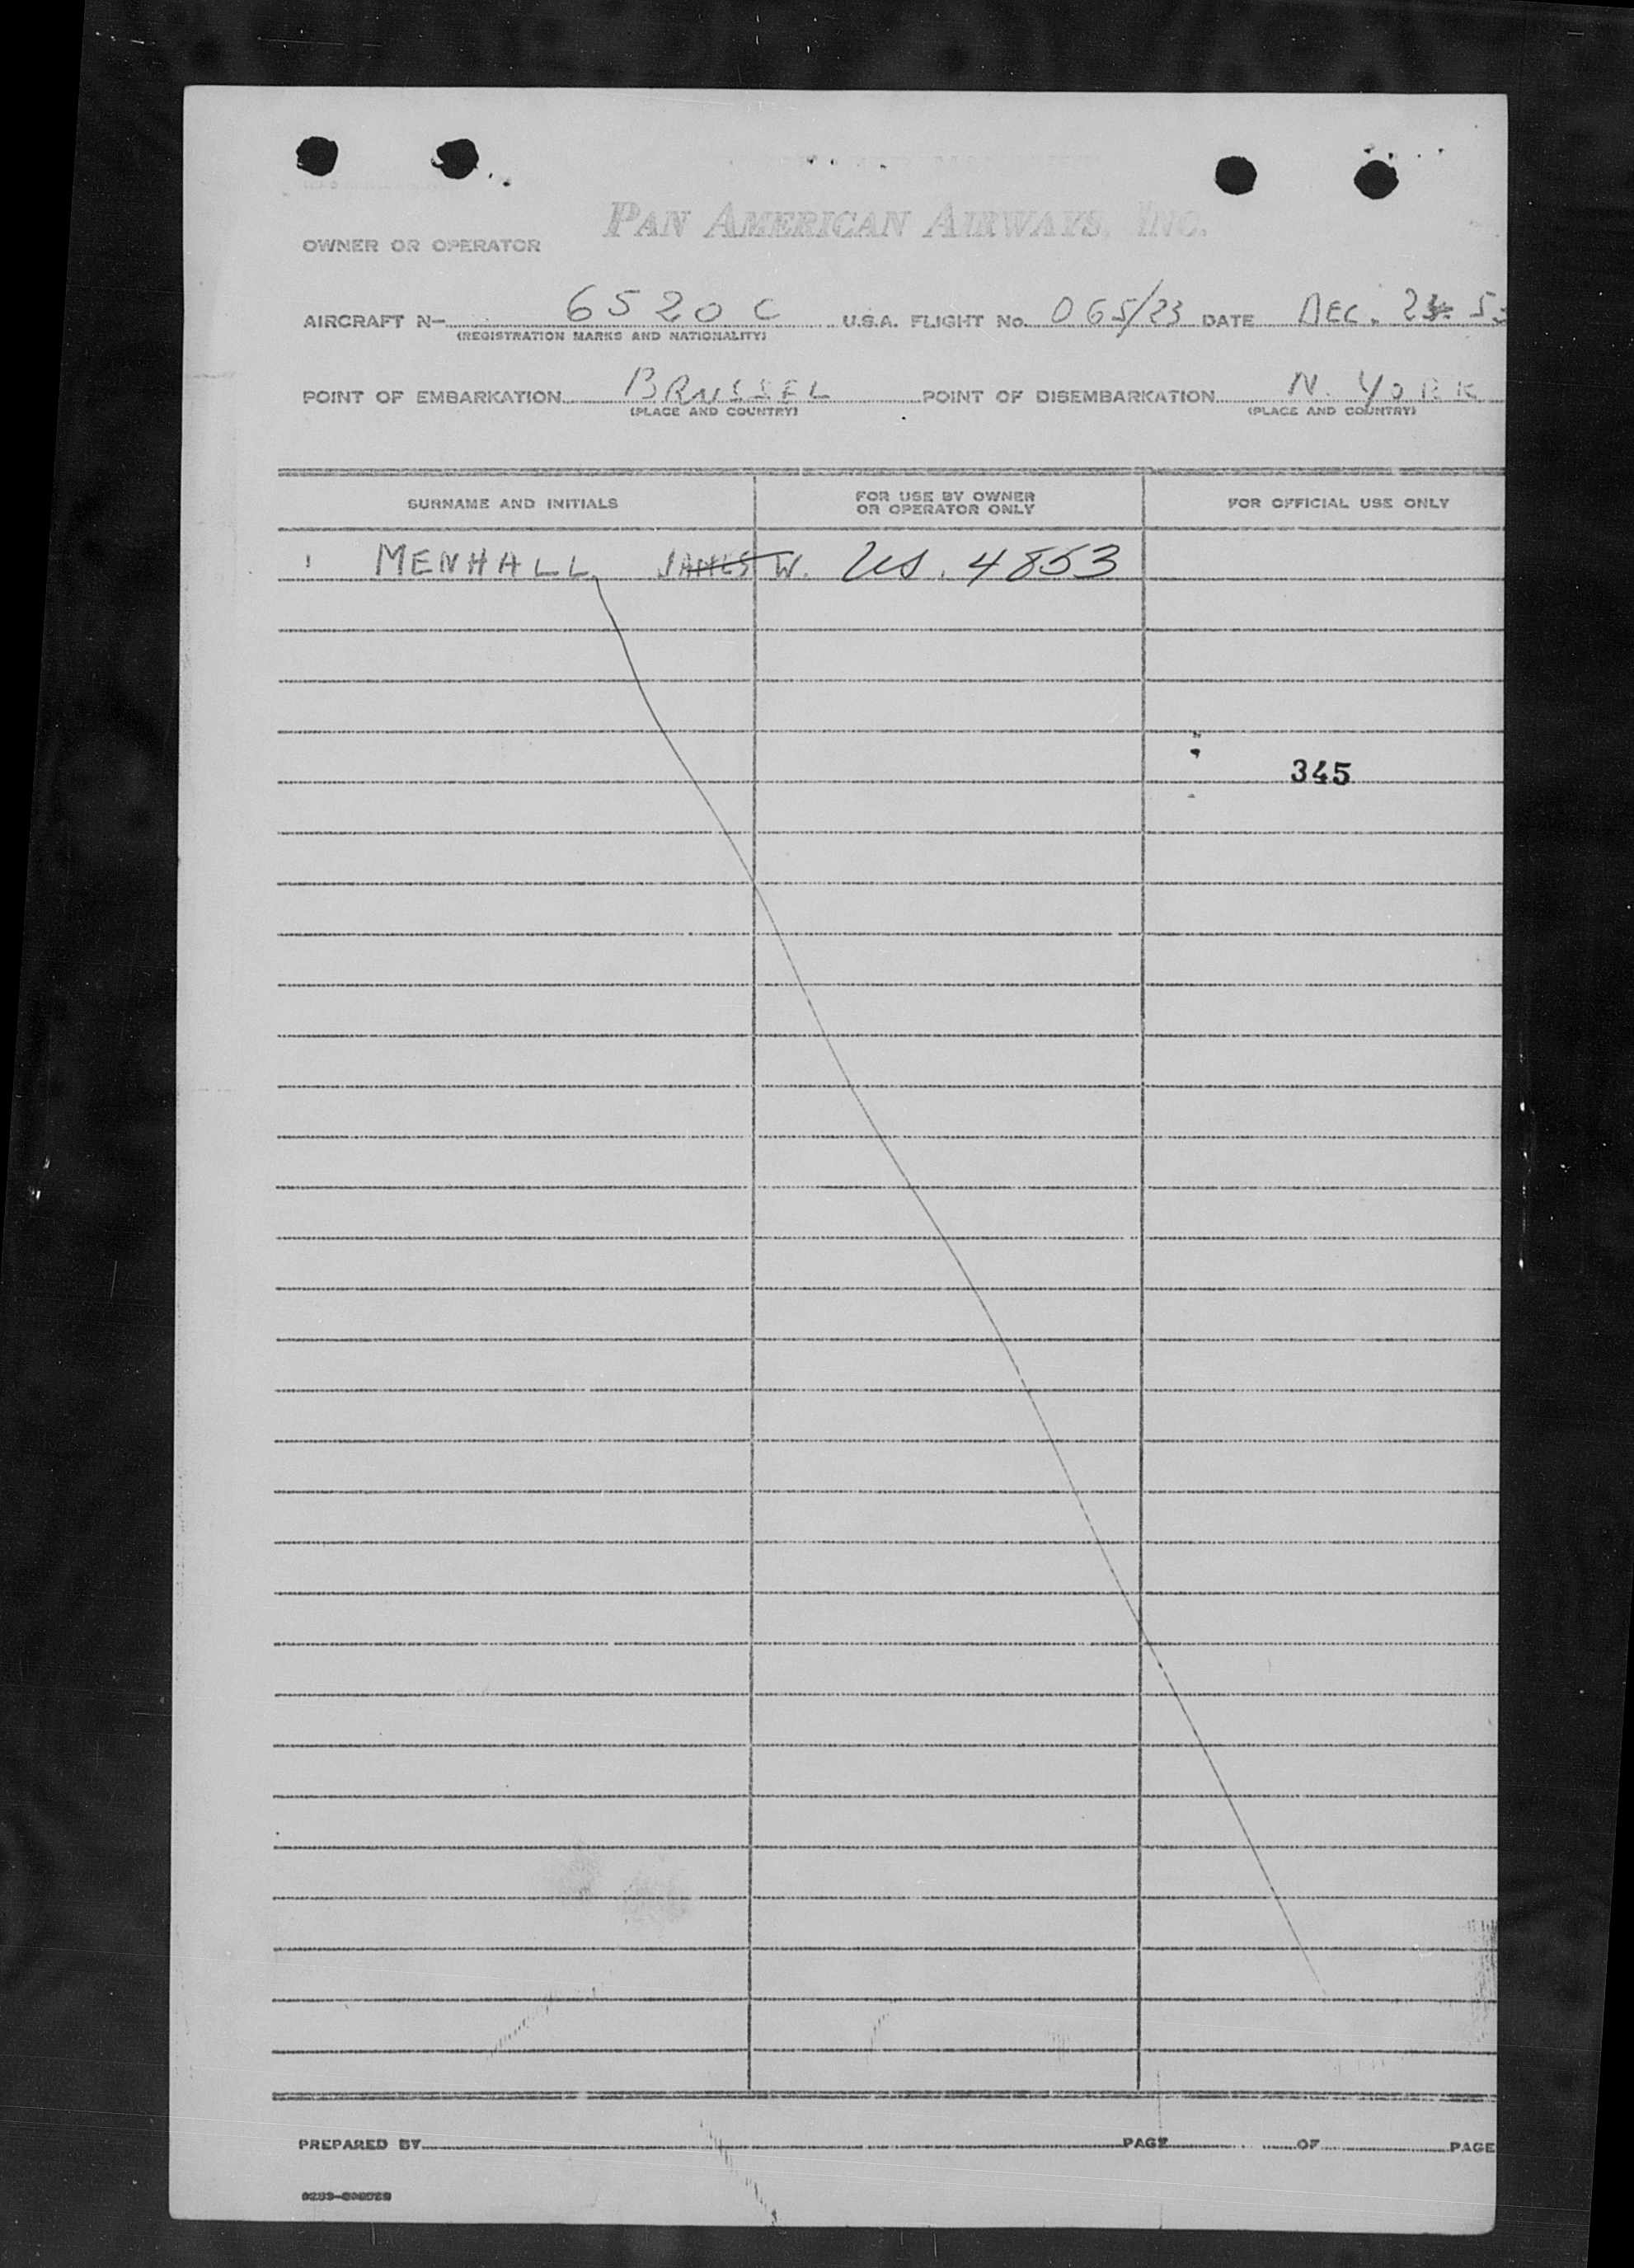 PAN AMERICAN AIRWAYS, INC.
OWNER OR OPERATOR
AIRCRAFT N- 6520C U.S.A. FLIGHT No. 065/23 DATE DEC.
(REGISTRATION MARKS AND NATIONALITY)
POINT OF EMBARKATION BRUSSEL POINT OF DISEMBARKATION N. YORK
(PLACE AND COUNTRY) (PLACE AND COUNTRY)
SURNAME AND INITIALS FOR USE BY OWNER OR OPERATOR ONLY FOR OFFICIAL USE ONLY
1 MENHALL, JAMES W. US. 4853
345
PREPARED BY PAGE OF PAGE